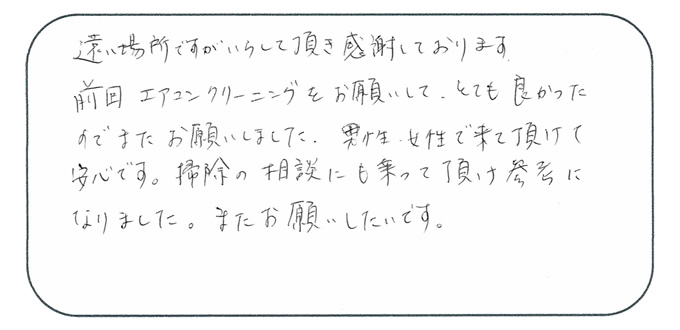 遠い場所ですがいらして頂き感謝しております
前回 エアコンクリーニングをお願いして、とても良かった
のでまたお願いしました。男性、女性で来て頂けて
安心です。掃除の相談にも乗って頂け参考に
なりました。またお願いしたいです。